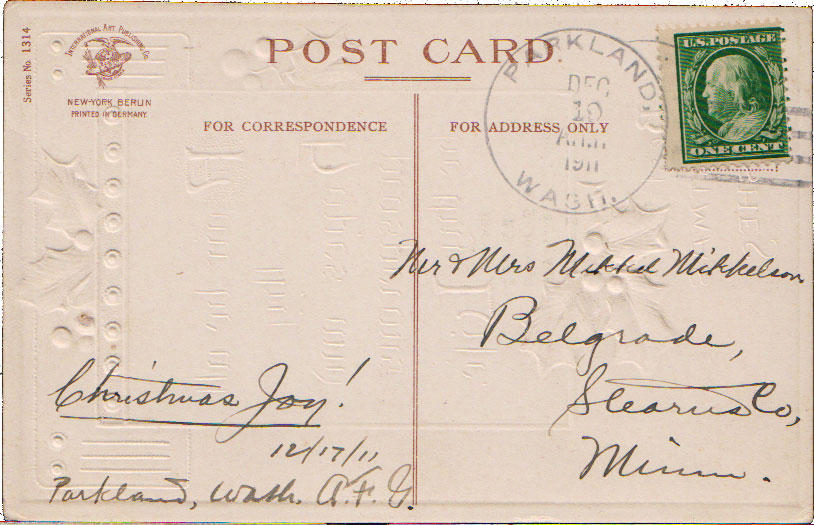 Series No. 1314
INTERNATIONAL ART PUBLISHING CO.
NEW-YORK BERLIN
PRINTED IN GERMANY
POST CARD
FOR CORRESPONDENCE
FOR ADDRESS ONLY
PARKLAND,
DEC
19
1911
WASH.
U.S. POSTAGE
ONE CENT
Mr & Mrs Mikkel Mikkelson
Belgrade,
Stearns Co,
Minn.
Christmas Joy!
12/17/11
Parkland, Wash. A.F.G.